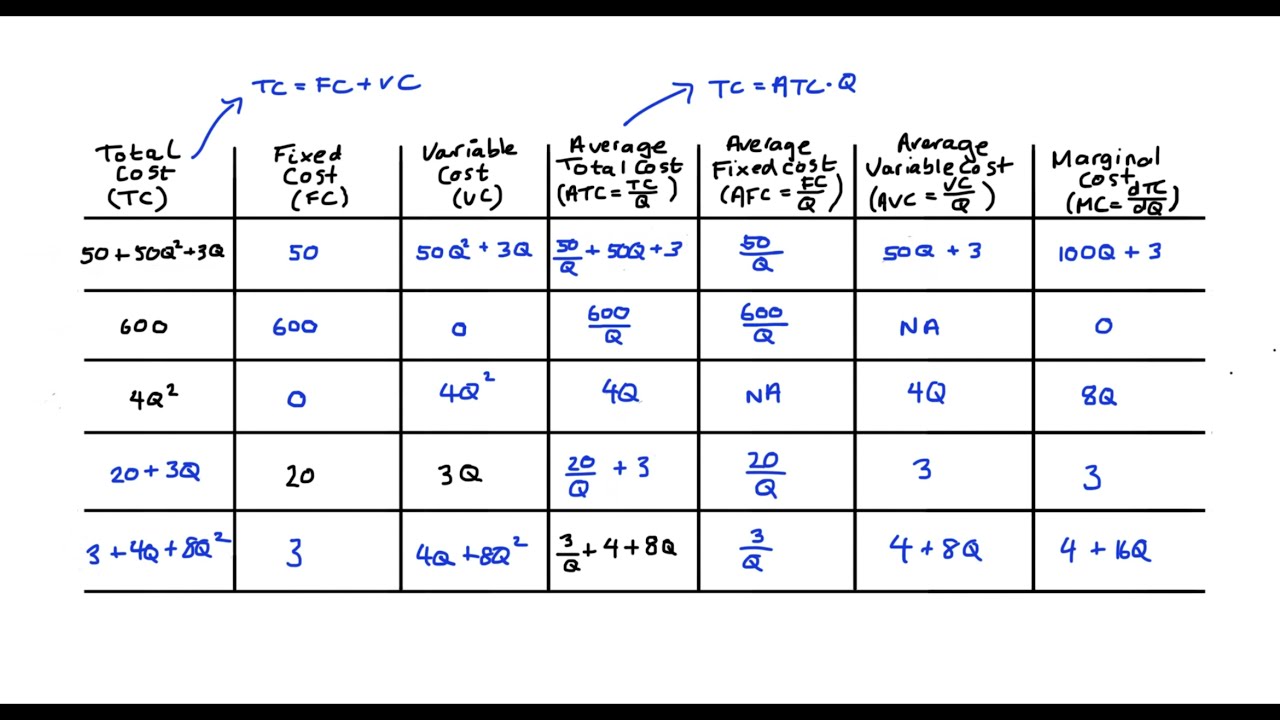 TC = FC + VC
TC = ATC · Q
Total Cost (TC)
Fixed Cost (FC)
Variable Cost (VC)
Average Total Cost (ATC = TC/Q)
Average Fixed Cost (AFC = FC/Q)
Average Variable Cost (AVC = VC/Q)
Marginal Cost (MC = dTC/dQ)
50 + 50Q² + 3Q
50
50Q² + 3Q
50/Q + 50Q + 3
50/Q
50Q + 3
100Q + 3
600
600
0
600/Q
600/Q
NA
0
4Q²
0
4Q²
4Q
NA
4Q
8Q
20 + 3Q
20
3Q
20/Q + 3
20/Q
3
3
3 + 4Q + 8Q²
3
4Q + 8Q²
3/Q + 4 + 8Q
3/Q
4 + 8Q
4 + 16Q